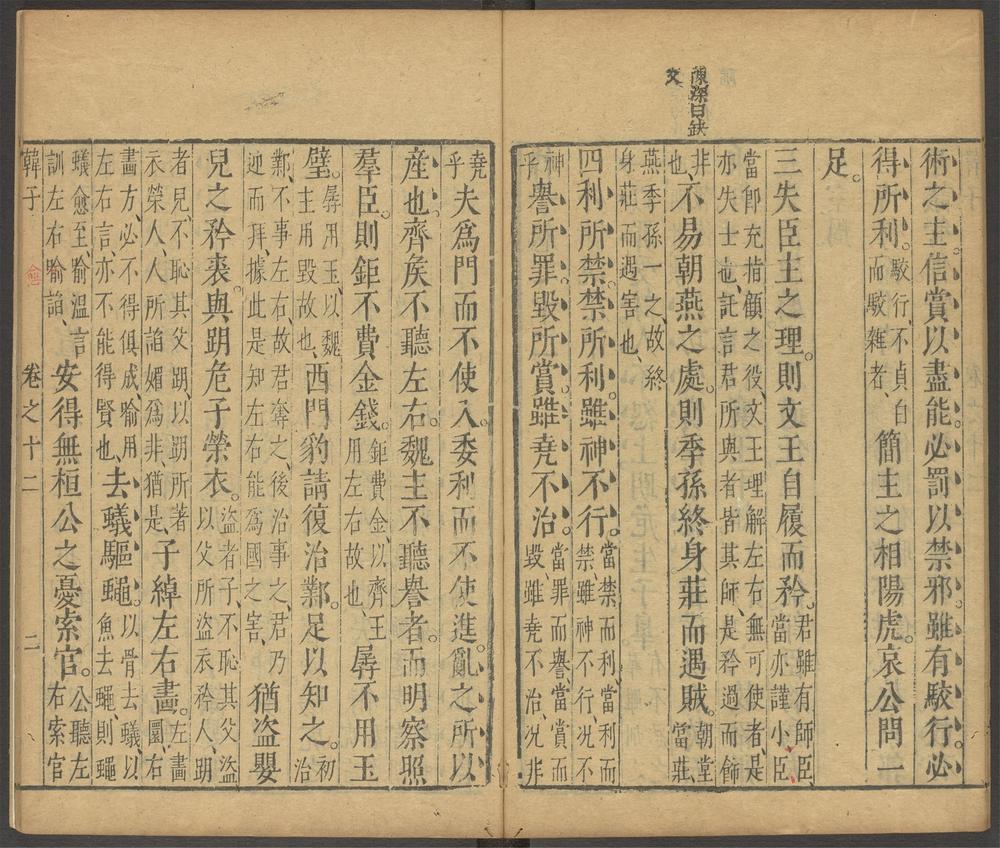 陳深曰缺
文
術之主。信賞以盡能。必罰以禁邪。雖有駮行。必
得所利。駮行、不貞白而駮雜者、簡主之相陽虎。哀公問一
足。
三失臣主之理。則文王自履而矜。君雖有師臣、當亦謹小臣
當卽充指顧之役、文王理解左右無可使者、是
亦失士也、託言君所與者皆其師、是矜過而飾
非也、不易朝燕之處。則季孫終身莊而遇賊。朝堂當莊、
燕季孫一之、故終
身莊而遇害也、
四利所禁。禁所利。雖神不行。當禁而利、當利而禁、雖神不行、況不
神乎、譽所罪。毀所賞。雖堯不治。當罪而譽、當賞而毀、雖堯不治、況非
堯乎、夫爲門而不使入。委利而不使進。亂之所以
產也。齊侯不聽左右。魏主不聽譽者。而明察照
羣臣。則鉅不費金錢。鉅費金、以齊王用左右故也、孱不用玉
璧。孱用玉、以魏主用毀故也、西門豹請復治鄴。足以知之。初治
鄴、不事左右、故君奪之、後治事之、君乃迎而拜、據此是知左右能爲國之害、猶盜嬰
兒之矜裘。與跀危子榮衣。盜者子、不恥其父盜、以父所盜衣矜人、跀
者兒、不恥其父跀、以跀所著衣榮人、人所諂媚爲非、猶是、子綽左右畫。左畫圓、右
畫方、必不得俱成、喻用左右言、亦不能得賢也、去蟻驅蠅。以骨去蟻、以魚去蠅、則蠅
蟻愈至、喻溫言訓左右喻諂、安得無桓公之憂索官。公聽左右索官
韓子 卷之十二 二